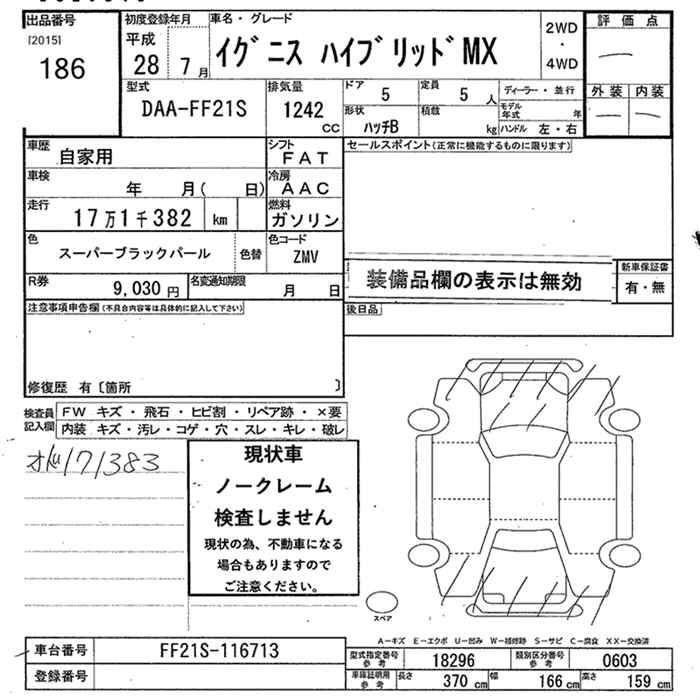 出品番号
[2015]
186
初度登録年月
平成
28 7 月
車名・グレード
イグニス ハイブリッドMX
2WD
・
4WD
評価点
—
外装 内装
— —
型式
DAA-FF21S
排気量
1242
cc
ドア
5
定員
5 人
形状
ハッチB
積載
kg
ディーラー・並行
モデル年式 年
ハンドル 左・右
車歴
自家用
シフト
FAT
セールスポイント(正常に機能するものに限ります)
車検
年 月( 日)
冷房
AAC
走行
17万1千382 km
燃料
ガソリン
色
スーパーブラックパール
色替
色コード
ZMV
R券
9,030 円
名変通知期限
月 日
装備品欄の表示は無効
新車保証書
有・無
注意事項申告欄(不具合内容等は具体的に記入して下さい)
後日品
修復歴 有〔箇所 〕
検査員記入欄
FW キズ・飛石・ヒビ割・リペア跡・×要
内装 キズ・汚レ・コゲ・穴・スレ・キレ・破レ
オド171383
現状車
ノークレーム
検査しません
現状の為、不動車になる
場合もありますので
ご注意ください。
スペア
A−キズ E−エクボ U−凹み W−補修跡 S−サビ C−腐食 XX−交換済
車台番号
FF21S-116713
型式指定番号
参考
18296
類別区分番号
参考
0603
登録番号
車庫証明用
参考
長さ
370 cm
幅
166 cm
高さ
159 cm